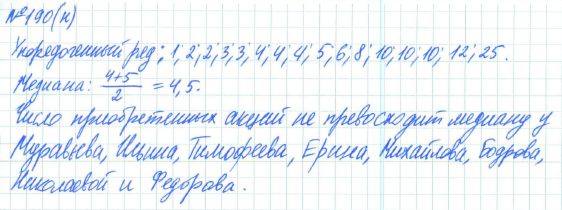 №190(н)
Упорядоченный ряд: 1; 2; 2; 3; 3; 4; 4; 4; 5; 6; 8; 10; 10; 10; 12; 25.
Медиана: (4+5)/2 = 4,5.
Число приобретенных акций не превосходит медиану у
Муравьева, Ицина, Тимофеева, Ерина, Михайлова, Бодрова,
Николаевой и Федорова.